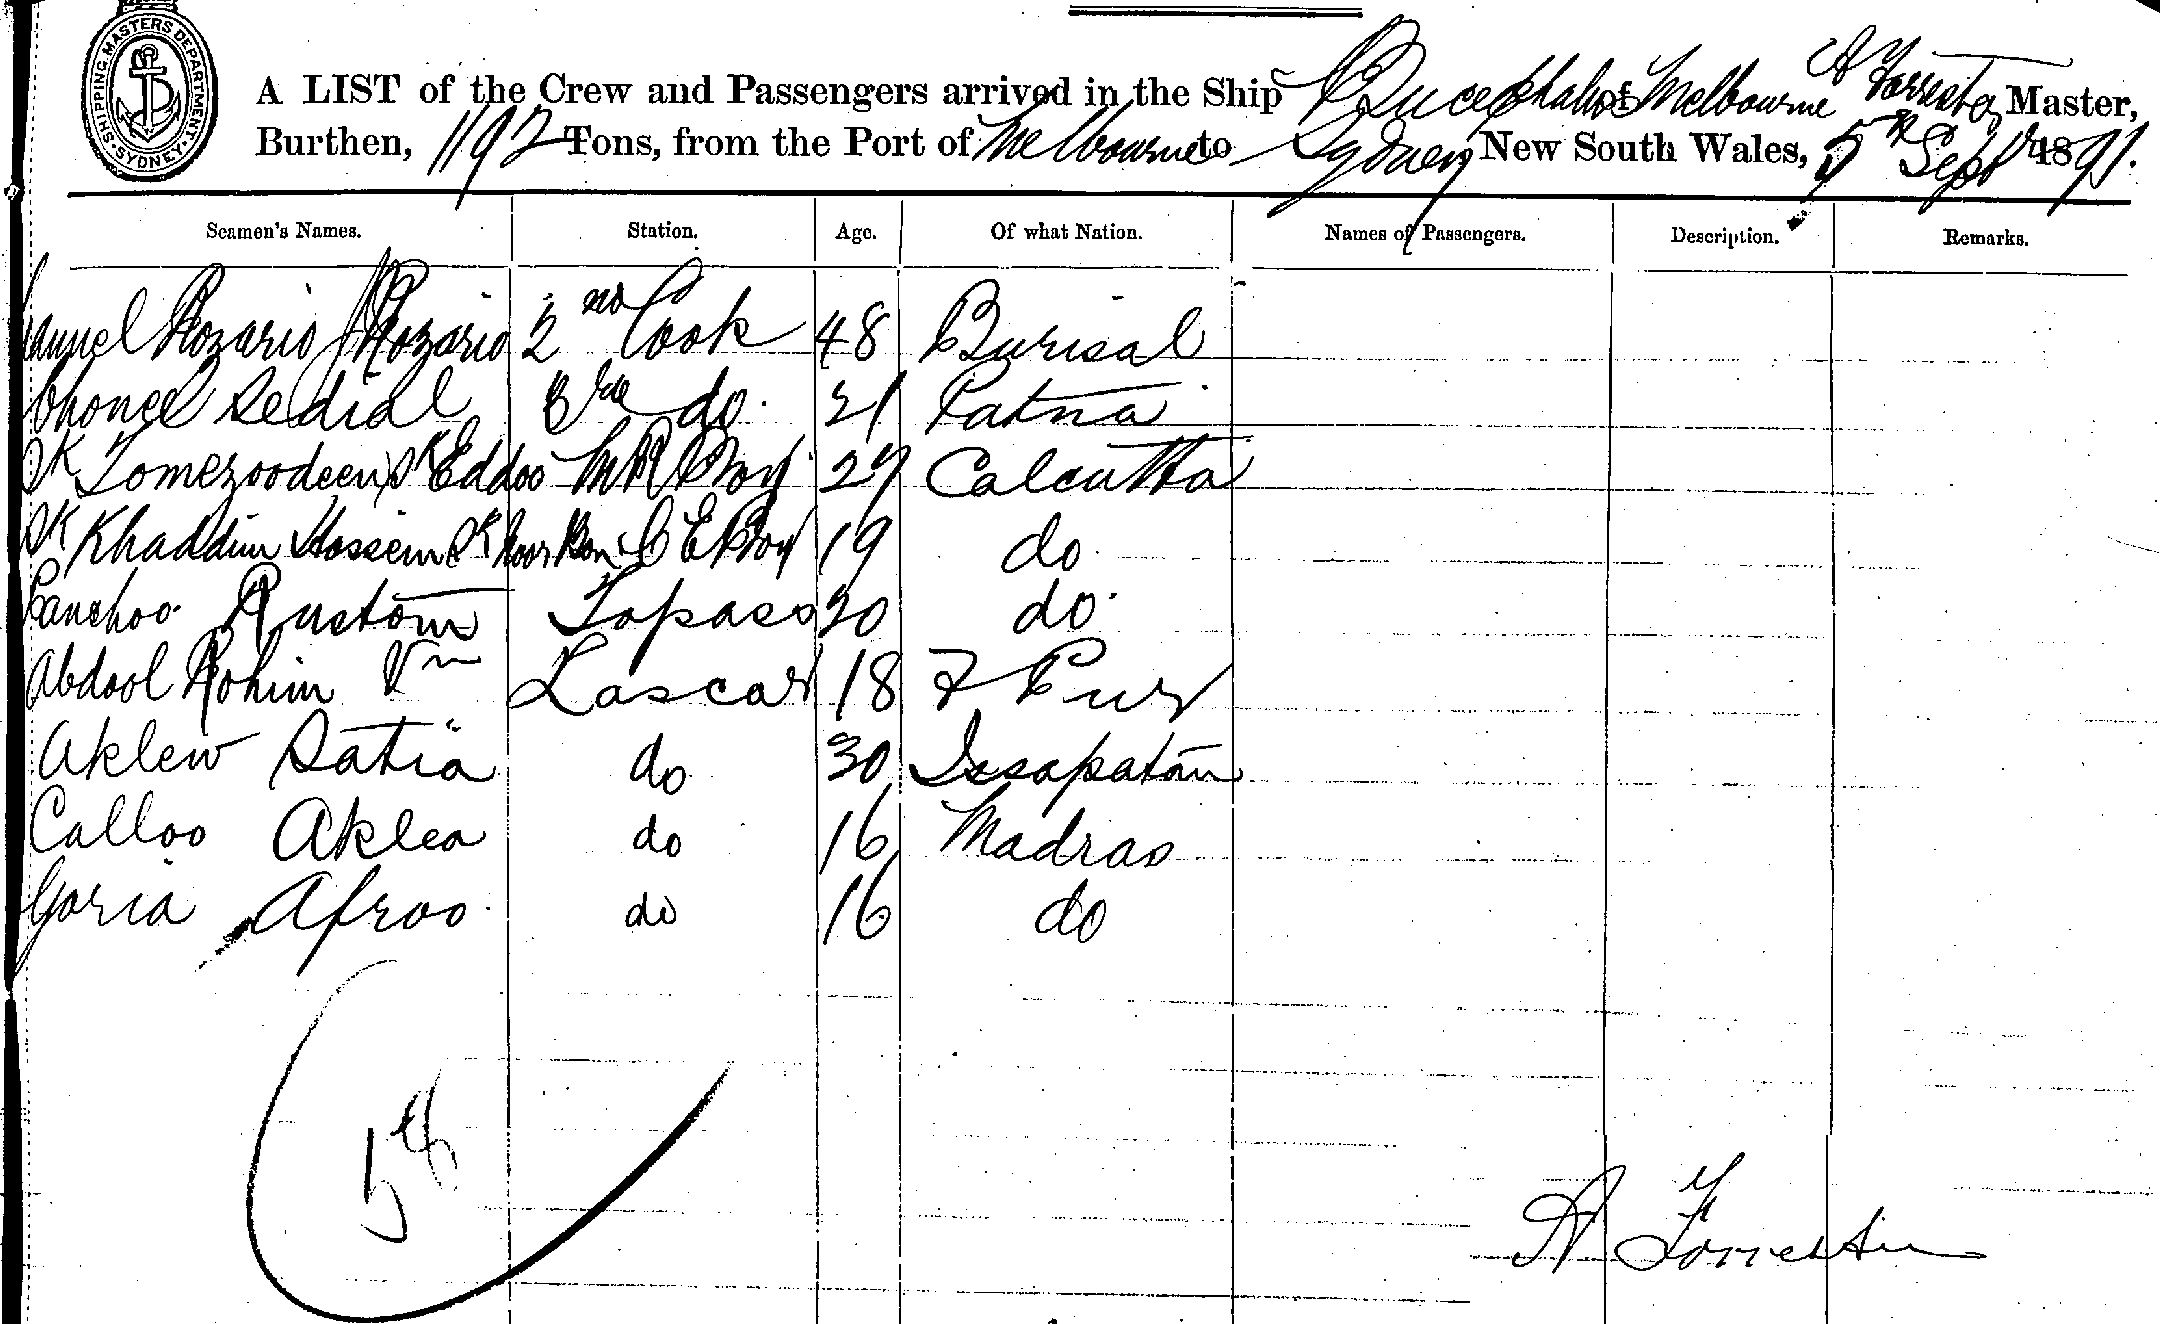 SHIPPING MASTERS DEPARTMENT · SYDNEY ·
A LIST of the Crew and Passengers arrived in the Ship Bucephalus of Melbourne A Forrester Master,
Burthen, 1192 Tons, from the Port of Melbourne to Sydney New South Wales, 5th Sept 1891.
Seamen's Names. Station. Age. Of what Nation. Names of Passengers. Description. Remarks.
Rozario Rozario 2nd Cook 48 Burisal
Sedial 3rd do. 21 Patna
Sk Tomezoodeen Sk Eddoo M R Boy 27 Calcutta
Sk Khaddim Hossein Sk C E Boy 19 do
Panchoo Rustom Topass 30 do
Abdool Rohim Lascar 18 F Pur
Aklew Satia do 30 Issapatam
Calloo Aklea do 16 Madras
Goria Afroo do 16 do
5th
A Forrester